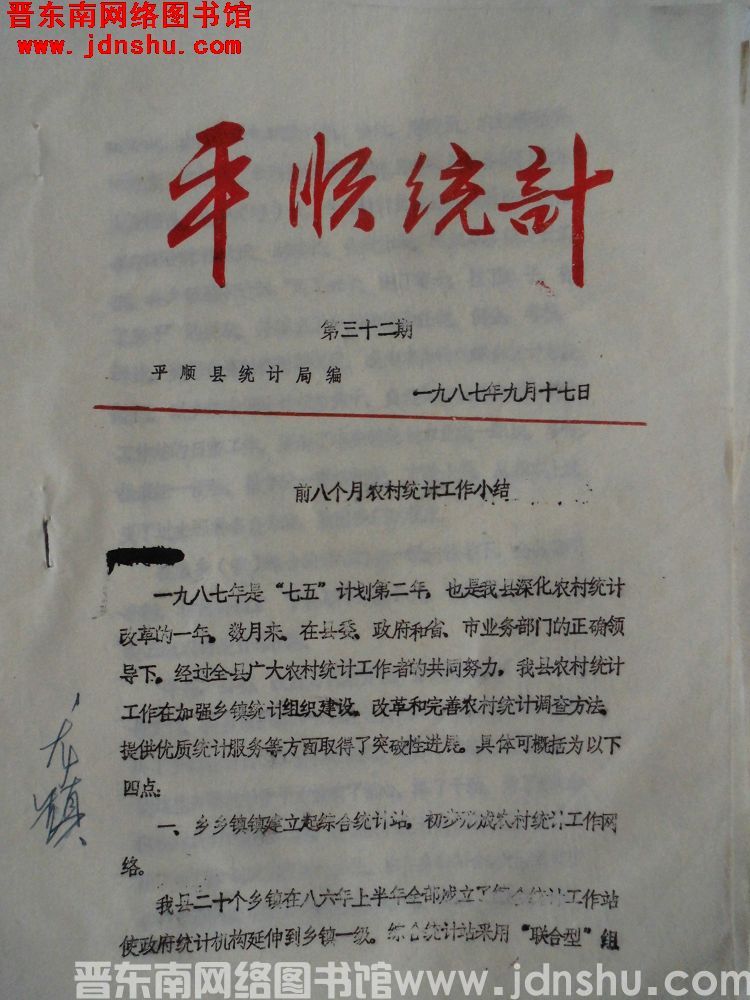 晋东南网络图书馆
www.jdnshu.com
平顺统計
第三十二期
平顺县统计局编
一九八七年九月十七日
前八个月农村统计工作小结
一九八七年是“七五”计划第二年，也是我县深化农村统计
改革的一年。数月来，在县委、政府和省、市业务部门的正确领
导下，经过全县广大农村统计工作者的共同努力，我县农村统计
工作在加强乡镇统计组织建设，改革和完善农村统计调查方法，
提供优质统计服务等方面取得了突破性进展。具体可概括为以下
四点：
一、乡乡镇镇建立起综合统计站，初步形成农村统计工作网
络。
我县二十个乡镇在八六年上半年全部成立了综合统计工作站
使政府统计机构延伸到乡镇一级。综合统计站采用“联合型”组
龙镇
晋东南网络图书馆www.jdnshu.com